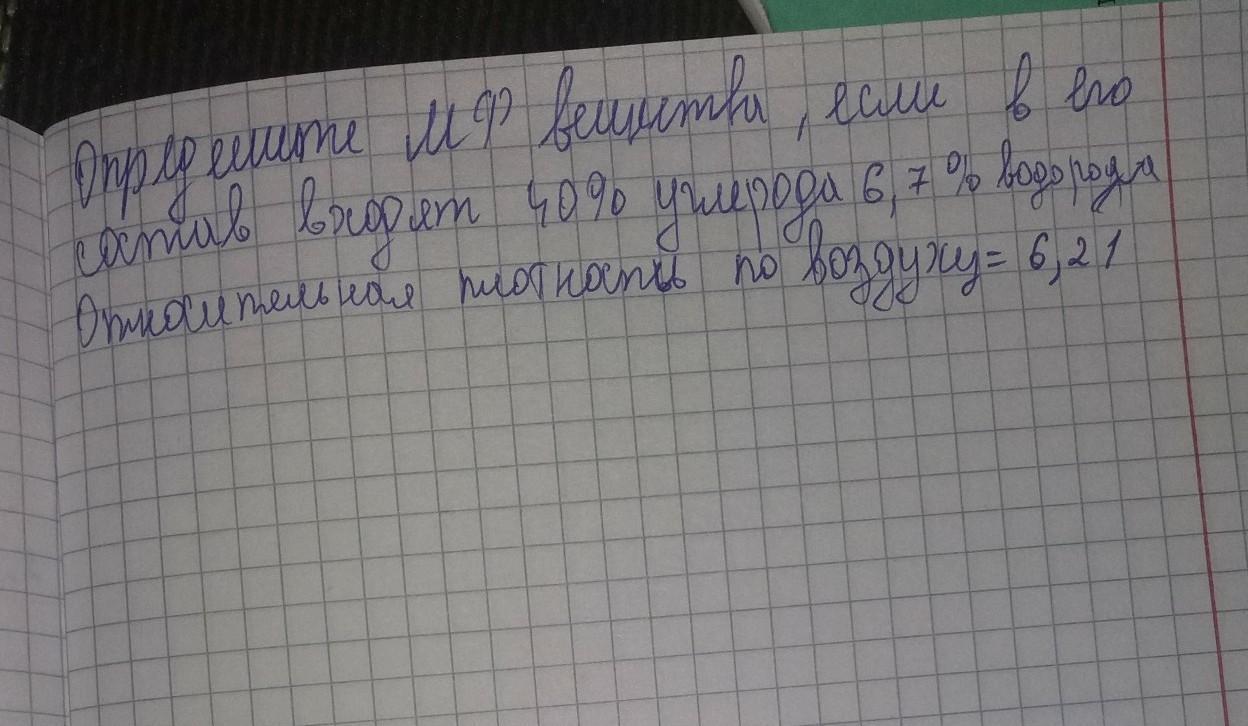 Определите МФ вещества, если в его
состав входят 40% углерода 6,7% водорода
Относительная плотность по воздуху = 6,21